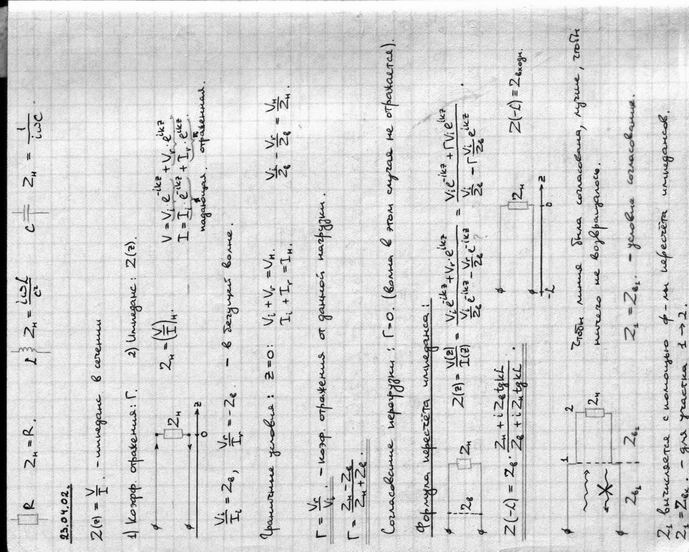 R Z_н = R. L Z_н = iωL/c² C Z_н = 1/iωC.
23.04.02.
Z(z) = V/I. - импеданс в сечении
1) Коэфф. отражения: Γ. 2) Импеданс: Z(z).
Z_н Z_н = (V/I)_н. V = V_i e^{-ikz} + V_r · e^{ikz}
I = I_i e^{-ikz} + I_r · e^{ikz}
0 z падающая. отраженная.
V_i/I_i = Z_в, V_r/I_r = -Z_в. - в бегущей волне.
Граничные условия: z=0: V_i + V_r = V_н. V_i/Z_в - V_r/Z_в = V_н/Z_н.
I_i + I_r = I_н.
Γ = V_r/V_i - коэф. отражения от данной нагрузки.
Γ = (Z_н - Z_в)/(Z_н + Z_в).
Согласование: Γ=0. (волна в этом случае не отражается).
Формула пересчёта импеданса:
Z_в Z_н Z(z) = V(z)/I(z) = (V_i e^{-ikz} + V_r · e^{ikz})/(V_i/Z_в e^{-ikz} - V_r/Z_в e^{-ikz}) = (V_i e^{-ikz} + Γ V_i e^{ikz})/(V_i/Z_в - Γ V_i/Z_в e^{ikz}).
Z(-L) = Z_в · (Z_н + i Z_в tg kL)/(Z_в + i Z_н tg kL) Z_н Z(-L) = Z_входн.
-L 0 z
1 2 Чтобы линия была согласована, нужно, чтобы
Z_н ничего не возвращалось.
Z_в1 Z_в2 Z_1 = Z_в1. - условие согласования.
Z_1 вычисляется с помощью ф-лы пересчёта импедансов.
- для участка 1→2.